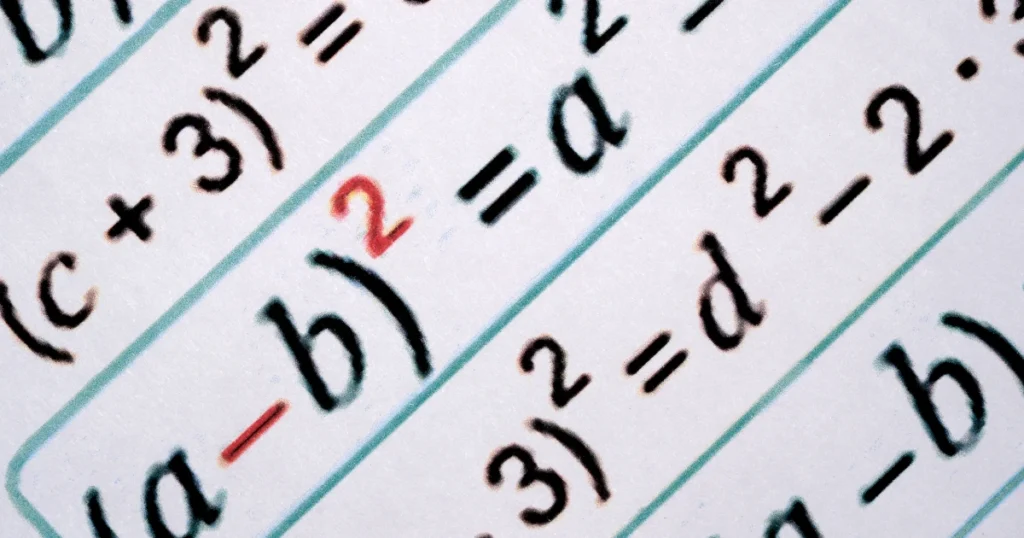 (c + 3)² =
(a - b)² = a² -
3)² = d² - 2 ·
a - b)